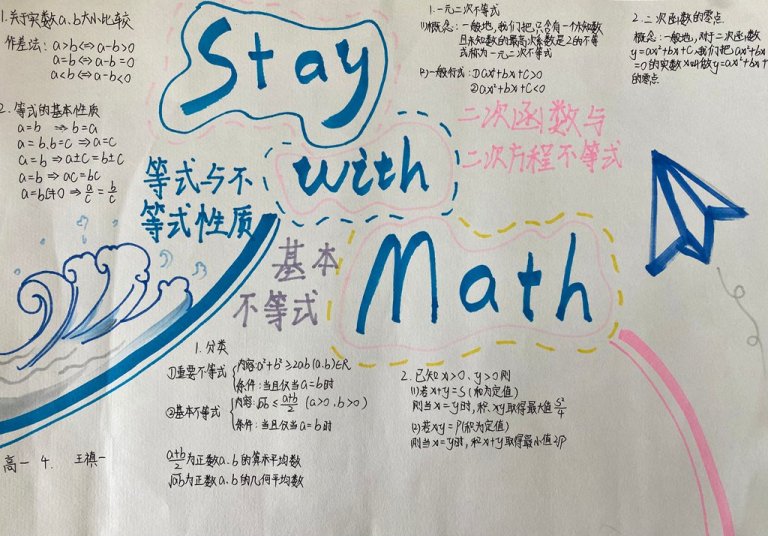 1.关于实数a、b大小比较
作差法：a>b⇔a-b>0
a=b⇔a-b=0
a<b⇔a-b<0
2.等式的基本性质
a=b ⇒b=a
a=b.b=c⇒a=c
a=b⇒a±c=b±c
a=b⇒ac=bc
a=b,c≠0⇒a/c=b/c
Stay
with
Math
等式与不
等式性质
基本
不等式
二次函数与
二次方程不等式
1.一元二次不等式
(1)概念：一般地，我们把只含有一个未知数
且未知数的最高次数是2的不等
式称为一元二次不等式
(2)一般形式：①ax²+bx+c>0
②ax²+bx+c<0
2.二次函数的零点
概念：一般地，对于二次函数
y=ax²+bx+c,我们把ax²+bx+
=0的实数x叫做y=ax²+bx+
的零点
1.分类
①重要不等式{内容:a²+b²≥2ab(a.b)∈R
条件：当且仅当a=b时
②基本不等式{内容:√ab≤(a+b)/2 (a>0.b>0)
条件：当且仅当a=b时
(a+b)/2为正数a.b的算术平均数
√ab为正数a.b的几何平均数
2.已知x>0、y>0则
(1)若x+y=S(和为定值)
则当x=y时，积xy取得最大值S²/4
(2)若xy=P(积为定值)
则当x=y时，和x+y取得最小值2√P
高一 4. 王禛一